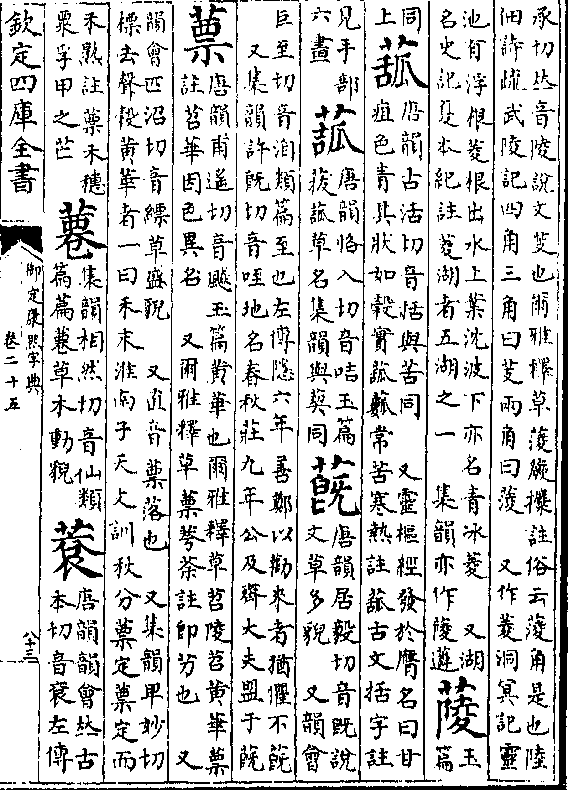 承切𠀤音陵說文芰也爾雅釋草蔆蕨攗註俗云蔆角是也陸
佃詩疏武陵記四角三角曰芰兩角曰蔆　又作菱洞冥記靈
池有浮根菱根出水上葉沈波下亦名青冰菱　又湖
名史記夏本紀註菱湖者五湖之一　集韻亦作陵遴
䔖　玉
篇
同
上
菰　唐韻古活切音括與苦同　又靈樞經發於膺名曰甘
疽色青其狀如穀實菰常苦寒熱註菰古文括字註
見手部
六畫
菰　唐韻恪八切音咭玉篇
菝菰草名集韻與葜同
蔇　唐韻居毅切音旣說
文草多貌　又韻會
巨至切音洎類篇至也左傳隱六年善鄭以勸來者猶懼不蔇
又集韻許旣切音呬地名春秋莊九年公及齊大夫盟于蔇
蔈　唐韻甫遙切音飇玉篇黃華也爾雅釋草苕陵苕黃華蔈
註苕華因色異名　又爾雅釋草蔈荂荼註卽芀也　又
韻會匹沼切音縹草盛貌　又直音蔈落也　又集韻卑妙切
標去聲穀黃華者一曰禾末淮南子天文訓秋分蔈定蔈定而
禾熟註蔈禾穗
粟孚甲之芒
集韻相然切音仙類
篇篇草木動貌
蔉　唐韻韻會𠀤古
本切音袞左傳
欽定四庫全書
御定康熙字典
卷二十五
八三